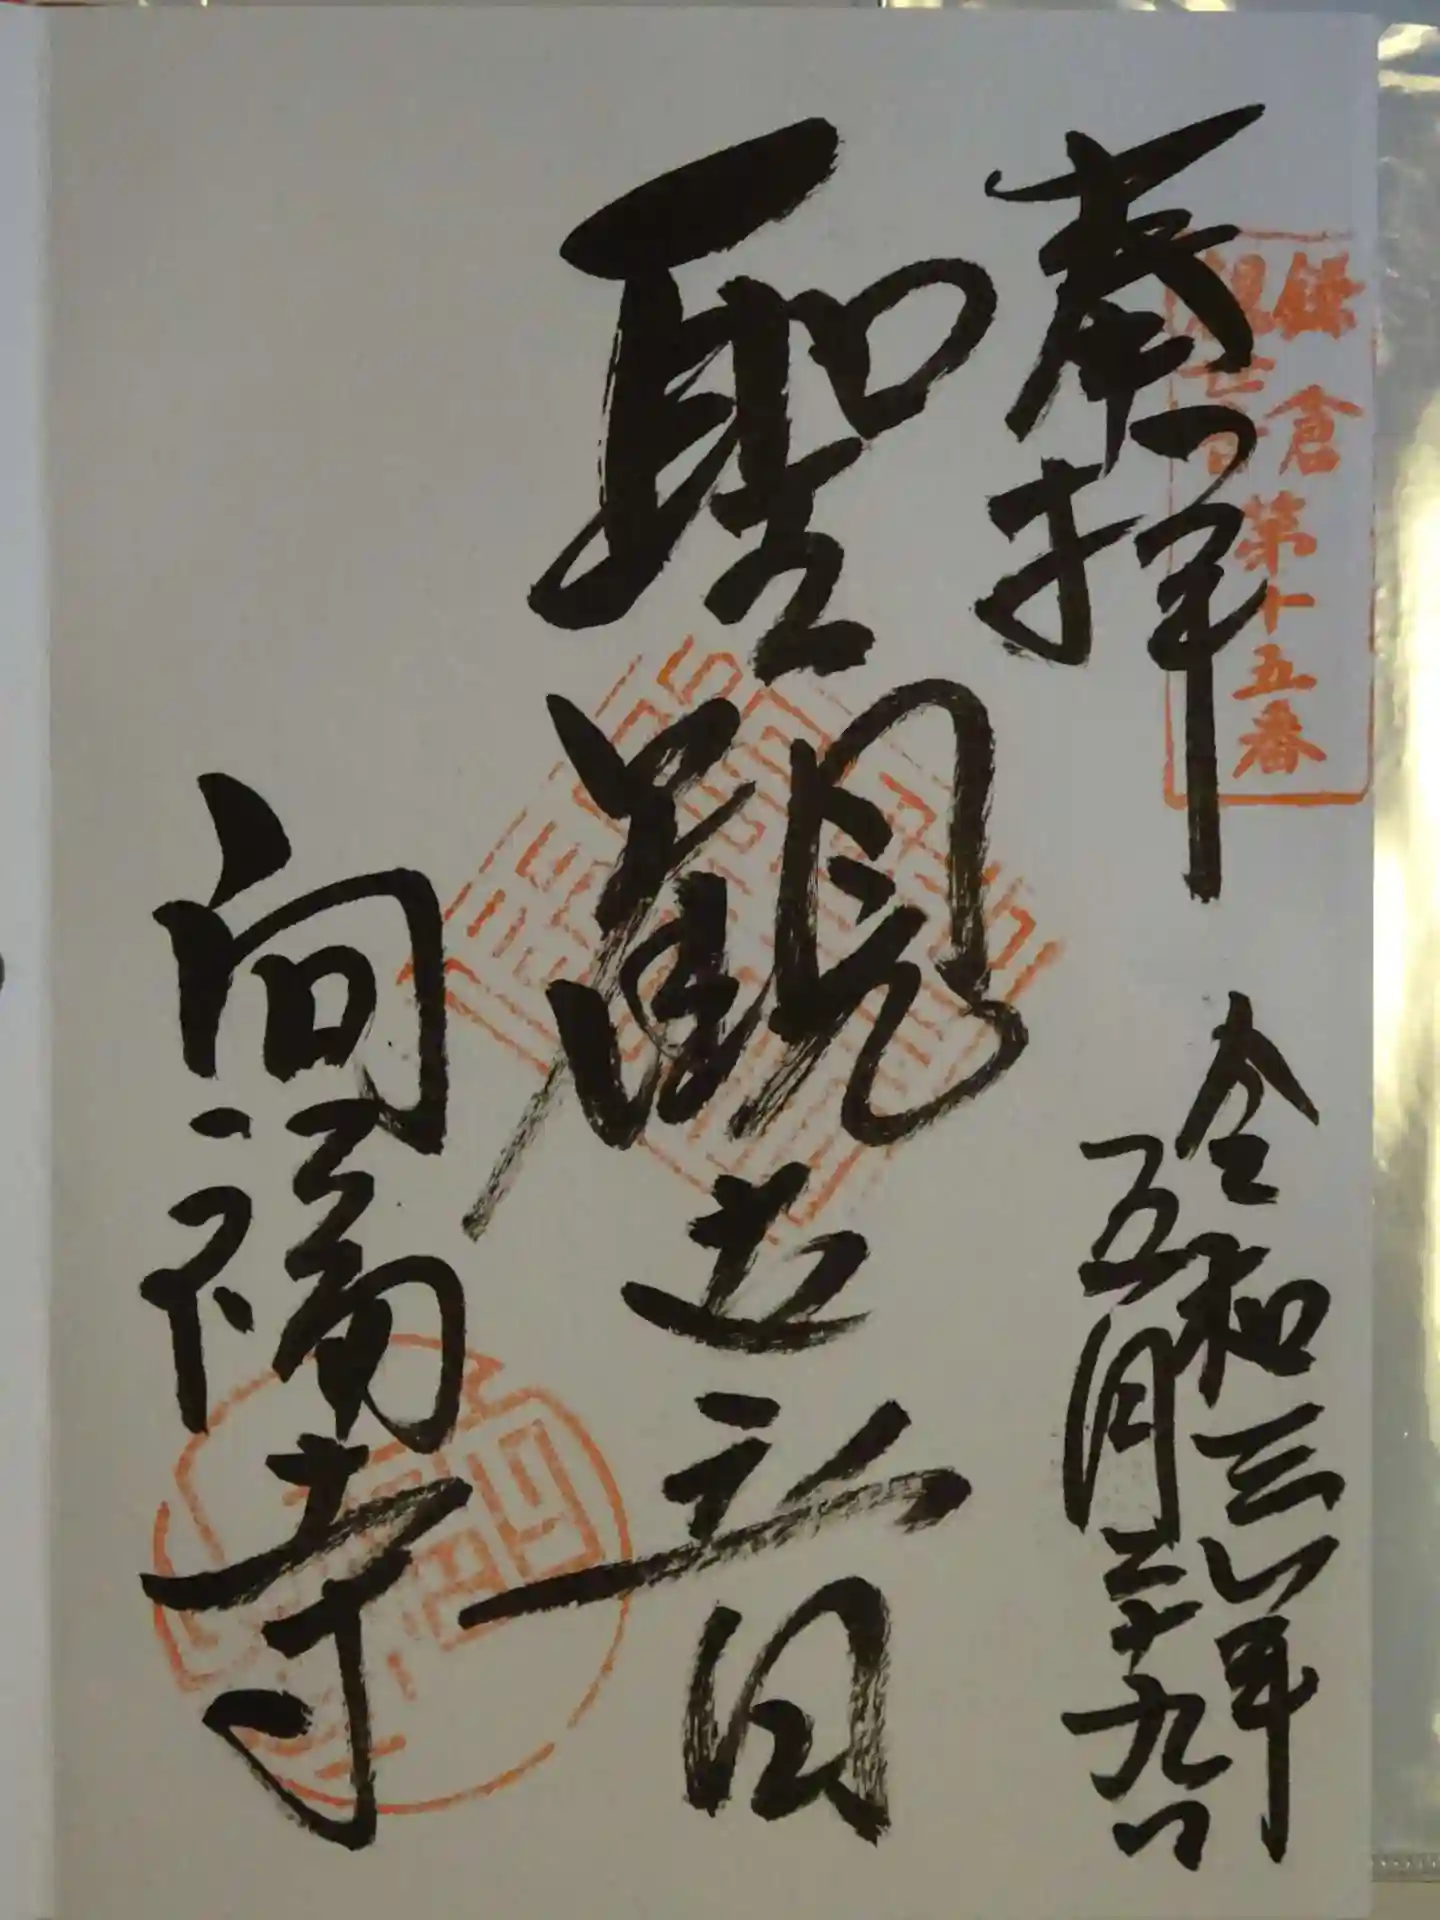 鎌倉
観世音
第十五番
奉拝
令和三年
五月二十九日
聖観世音
向福寺